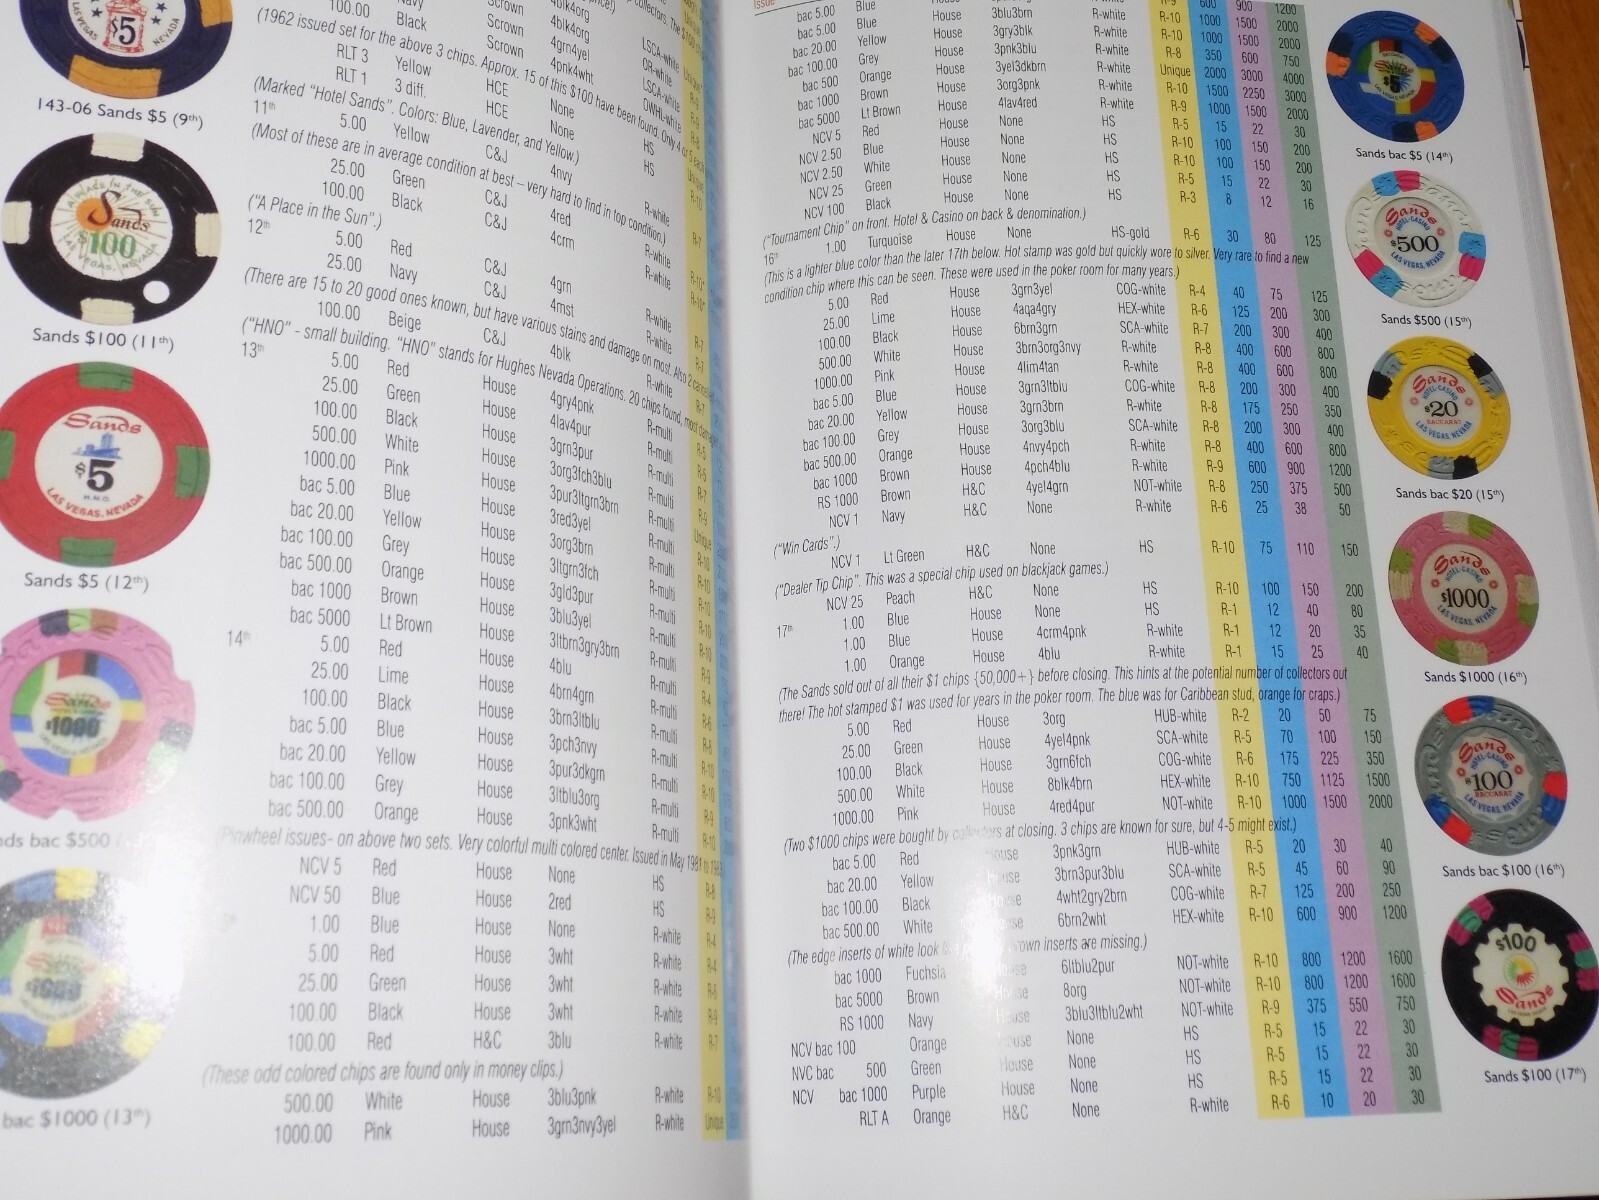 143-06 Sands $5 (9th)
Sands $100 (11th)
Sands $5 (12th)
bac $500
bac $1000 (13th)
100.00 Black Scrown 4blk4org
(1962 issued set for the above 3 chips. Approx. 15 of this $100 have been found. Only 4 or 5
RLT 3 Yellow HCE None HS
RLT 1 3 diff. HCE None HS
(Marked "Hotel Sands". Colors: Blue, Lavender, and Yellow.)
11th 5.00 Yellow C&J 4nvy R-white
(Most of these are in average condition at best – very hard to find in top condition.)
25.00 Green C&J 4red R-white
100.00 Black C&J 4crm R-white
("A Place in the Sun".)
12th 5.00 Red C&J 4grn R-white
25.00 Navy C&J 4mst R-white
(There are 15 to 20 good ones known, but have various stains and damage on most. Also 2
100.00 Beige C&J 4blk R-white
("HNO" - small building. "HNO" stands for Hughes Nevada Operations. 20 chips found, most
13th 5.00 Red House 4gry4pnk R-multi
25.00 Green House 4lav4pur R-multi
100.00 Black House 3grn3pur R-multi
500.00 White House 3org3fch3blu R-multi
1000.00 Pink House 3pur3ltgrn3brn R-multi
bac 5.00 Blue House 3red3yel R-multi
bac 20.00 Yellow House 3org3brn R-multi
bac 100.00 Grey House 3ltgrn3fch R-multi
bac 500.00 Orange House 3gld3pur R-multi
bac 1000 Brown House 3blu3yel R-multi
bac 5000 Lt Brown House 3ltbrn3gry3brn R-multi
14th 5.00 Red House 4blu R-multi
25.00 Lime House 4brn4grn R-multi
100.00 Black House 3brn3ltblu R-multi
bac 5.00 Blue House 3pch3nvy R-multi
bac 20.00 Yellow House 3pur3dkgrn R-multi
bac 100.00 Grey House 3ltblu3org R-multi
bac 500.00 Orange House 3pnk3wht R-multi
(Pinwheel issues- on above two sets. Very colorful multi colored center. Issued in May 1981
NCV 5 Red House None HS R-8
NCV 50 Blue House 2red HS R-9
1.00 Blue House None R-white R-4
5.00 Red House 3wht R-white R-4
25.00 Green House 3wht R-white
100.00 Black House 3wht R-white R-9
100.00 Red H&C 3blu R-white R-7
(These odd colored chips are found only in money clips.)
500.00 White House 3blu3pnk R-white R-10
1000.00 Pink House 3grn3nvy3yel R-white Unique
Issue
bac 5.00 Blue House 3blu3brn R-white R-10 1000 1500 2000
bac 5.00 Blue House 3gry3blk R-white R-10 1000 1500 2000
bac 20.00 Yellow House 3pnk3blu R-white R-8 350 600 750
bac 100.00 Grey House 3yel3dkbrn R-white Unique 2000 3000 4000
bac 500 Orange House 3org3pnk R-white R-10 1500 2250 3000
bac 1000 Brown House 4lav4red R-white R-9 1000 1500 2000
bac 5000 Lt Brown House None HS R-5 15 22 30
NCV 5 Red House None HS R-10 100 150 200
NCV 2.50 Blue House None HS R-10 100 150 200
NCV 2.50 White House None HS R-5 15 22 30
NCV 25 Green House None HS R-3 8 12 16
NCV 100 Black
("Tournament Chip" on front. Hotel & Casino on back & denomination.)
16th 1.00 Turquoise House None HS-gold R-6 30 80 125
(This is a lighter blue color than the later 17th below. Hot stamp was gold but quickly wore to silver. Very rare to find a new
condition chip where this can be seen. These were used in the poker room for many years.)
5.00 Red House 3grn3yel COG-white R-4 40 75 125
25.00 Lime House 4aqa4gry HEX-white R-6 125 200 300
100.00 Black House 6brn3grn SCA-white R-7 200 300 400
500.00 White House 3brn3org3nvy R-white R-8 400 600 800
1000.00 Pink House 4lim4tan R-white R-8 400 600 800
bac 5.00 Blue House 3grn3ltblu COG-white R-8 200 300 400
bac 20.00 Yellow House 3grn3brn R-white R-8 175 250 350
bac 100.00 Grey House 3org3blu SCA-white R-8 200 300 400
bac 500.00 Orange House 4nvy4pch R-white R-8 400 600 800
bac 1000 Brown House 4pch4blu R-white R-9 600 900 1200
RS 1000 Brown H&C 4yel4grn NOT-white R-8 250 375 500
NCV 1 Navy H&C None R-white R-6 25 38 50
("Win Cards".)
NCV 1 Lt Green H&C None HS R-10 75 110 150
("Dealer Tip Chip". This was a special chip used on blackjack games.)
NCV 25 Peach H&C None HS R-10 100 150 200
17th 1.00 Blue House None HS R-1 12 40 80
1.00 Blue House 4crm4pnk R-white R-1 12 20 35
1.00 Orange House 4blu R-white R-1 15 25 40
(The Sands sold out of all their $1 chips {50,000+} before closing. This hints at the potential number of collectors out
there! The hot stamped $1 was used for years in the poker room. The blue was for Caribbean stud, orange for craps.)
5.00 Red House 3org HUB-white R-2 20 50 75
25.00 Green House 4yel4pnk SCA-white R-5 70 100 150
100.00 Black House 3grn6fch COG-white R-6 175 225 350
500.00 White House 8blk4brn HEX-white R-10 750 1125 1500
1000.00 Pink House 4red4pur NOT-white R-10 1000 1500 2000
(Two $1000 chips were bought by collectors at closing. 3 chips are known for sure, but 4-5 might exist.)
bac 5.00 Red House 3pnk3grn HUB-white R-5 20 30 40
bac 20.00 Yellow House 3brn3pur3blu SCA-white R-5 45 60 90
bac 100.00 Black House 4wht2gry2brn COG-white R-7 125 200 250
bac 500.00 White House 6brn2wht HEX-white R-10 600 900 1200
(The edge inserts of white look inserts are missing.)
bac 1000 Fuchsia House 6ltblu2pur NOT-white R-10 800 1200 1600
bac 5000 Brown House 8org NOT-white R-10 800 1200 1600
RS 1000 Navy House 3blu3ltblu2wht NOT-white R-9 375 550 750
NCV bac 100 Orange House None HS R-5 15 22 30
NVC bac 500 Green House None HS R-5 15 22 30
NCV bac 1000 Purple House None HS R-5 15 22 30
RLT A Orange H&C None R-white R-6 10 20 30
Sands bac $5 (14th)
Sands $500 (15th)
Sands bac $20 (15th)
Sands $1000 (16th)
Sands bac $100 (16th)
Sands $100 (17th)